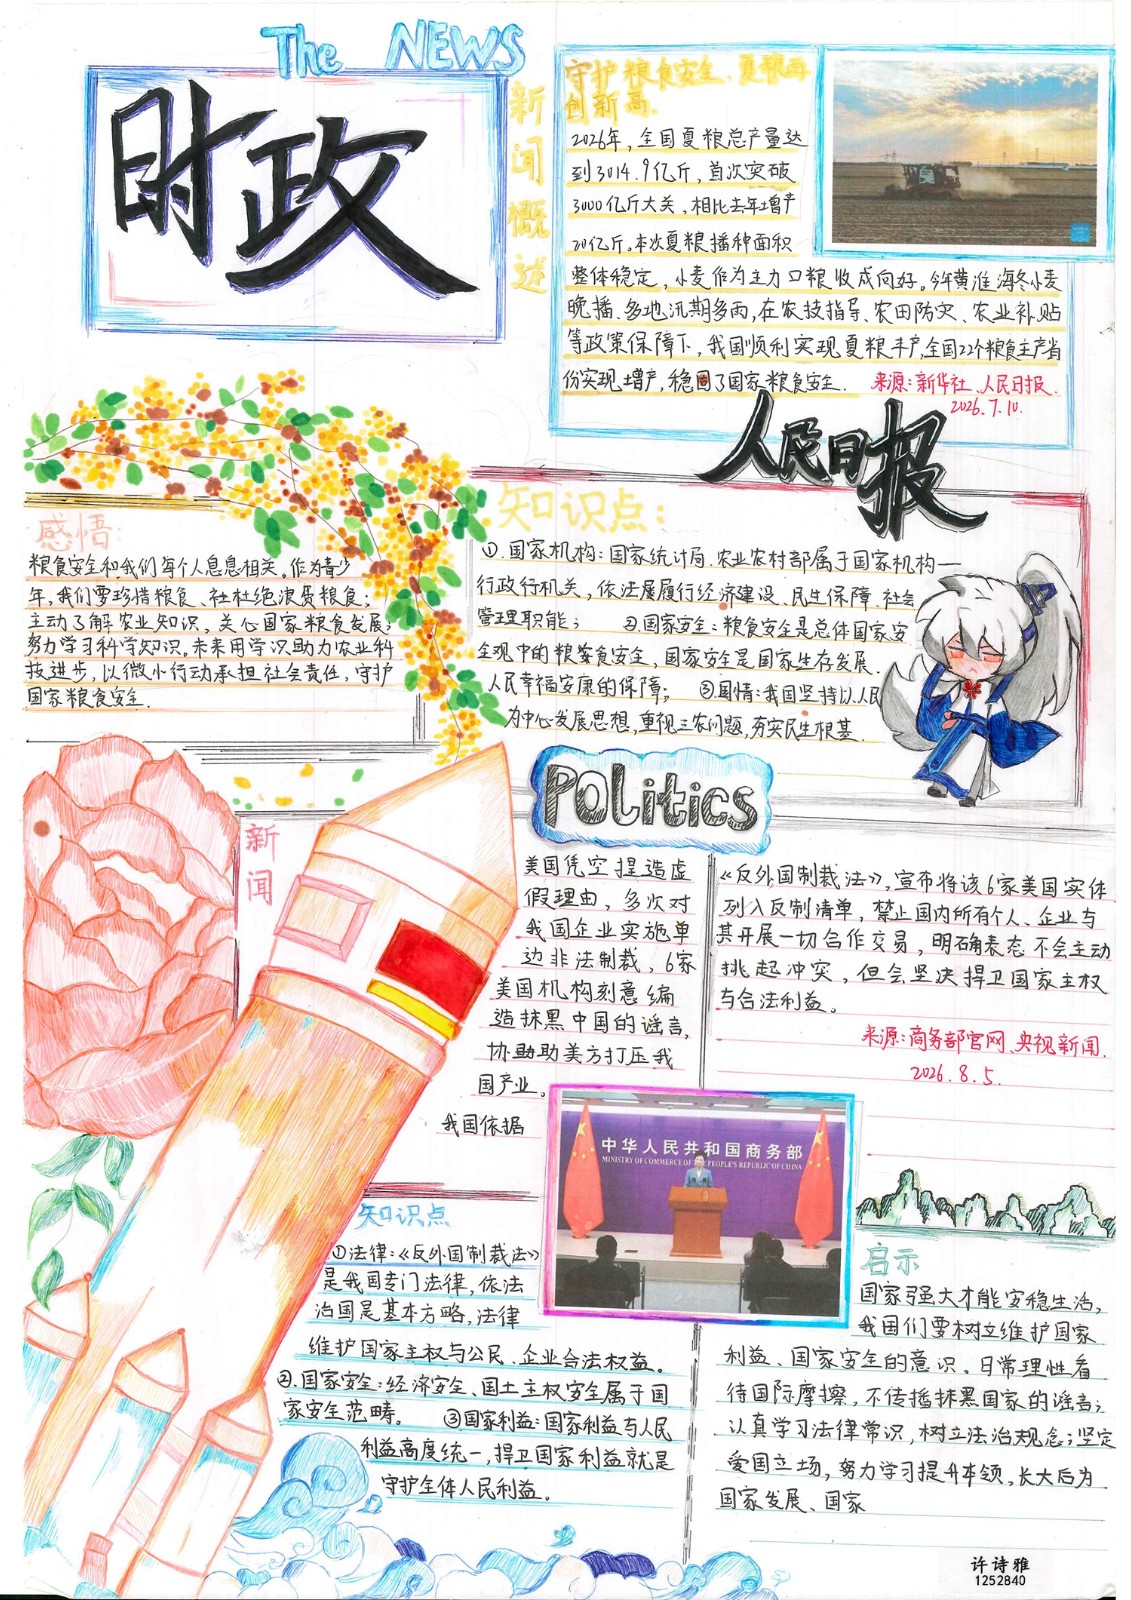 The NEWS
时政
新闻概述
守护粮食安全，夏粮再
创新高.
2026年，全国夏粮总产量达
到3014.9亿斤，首次突破
3000亿斤大关，相比去年增产
20亿斤。本次夏粮播种面积
整体稳定，小麦作为主力口粮收成向好。今年黄淮海冬小麦
晚播、多地汛期多雨，在农技指导、农田防灾、农业补贴
等政策保障下，我国顺利实现夏粮丰产,全国22个粮食主产省
份实现增产，稳固了国家粮食安全.
来源：新华社、人民日报.
2026.7.10.
人民日报
感悟：
粮食安全和我们每个人息息相关。作为青少
年，我们要珍惜粮食、杜绝浪费粮食；
主动了解农业知识，关心国家粮食发展；
努力学习科学知识。未来用学识助力农业科
技进步，以微小行动承担社会责任，守护
国家粮食安全.
知识点：
①.国家机构：国家统计局、农业农村部属于国家机构一
行政行机关，依法履履行经济建设、民生保障、社会
管理职能； ②国家安全：粮食安全是总体国家安
全观中的粮食安全，国家安全是国家生存发展、
人民幸福安康的保障； ③国情：我国坚持以人民
为中心发展思想，重视三农问题，夯实民生根基.
Politics
新闻
美国凭空捏造虚
假理由，多次对
我国企业实施单
边非法制裁，6家
美国机构刻意编
造抹黑中国的谣言，
协助助美方打压我
国产业。
我国依据
《反外国制裁法》，宣布将该6家美国实体
列入反制清单，禁止国内所有个人、企业与
其开展一切合作交易，明确表态不会主动
挑起冲突，但会坚决捍卫国家主权
与合法利益。
来源：商务部官网、央视新闻.
2026.8.5.
中华人民共和国商务部
MINISTRY OF COMMERCE OF PEOPLE'S REPUBLIC OF CHINA
知识点
①法律：《反外国制裁法》
是我国专门法律，依法
治国是基本方略，法律
维护国家主权与公民、企业合法权益。
②.国家安全：经济安全、国土主权安全属于国
家安全范畴。 ③国家利益：国家利益与人民
利益高度统一，捍卫国家利益就是
守护全体人民利益。
启示
国家强大才能安稳生活，
我国们要树立维护国家
利益、国家安全的意识。日常理性看
待国际摩擦，不传播抹黑国家的谣言；
认真学习法律常识，树立法治观念；坚定
爱国立场，努力学习提升本领，长大后为
国家发展、国家
许诗雅
1252840